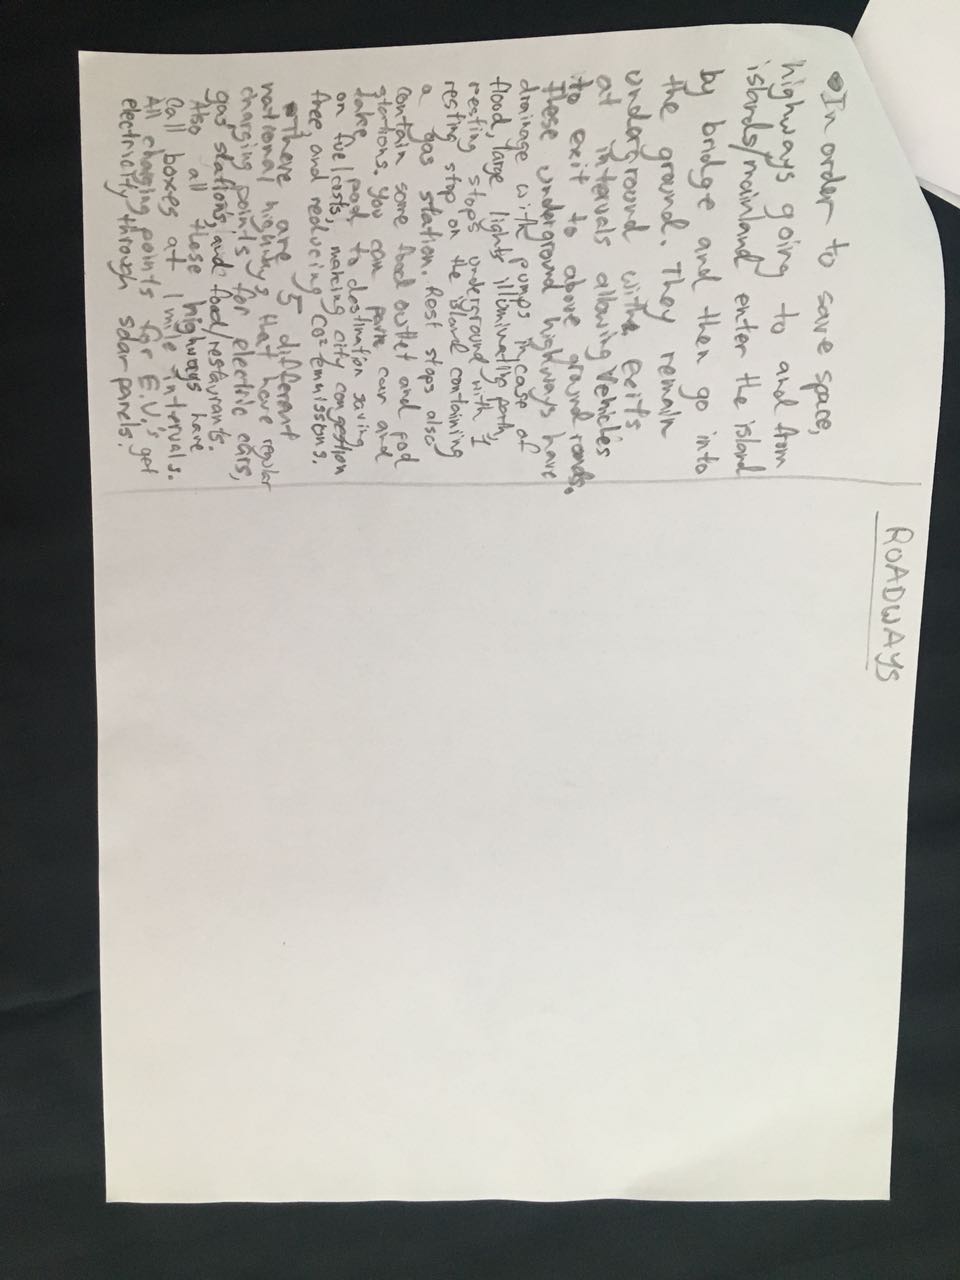 ROADWAYS
• In order to save space,
highways going to and from
islands/mainland enter the island
by bridge and then go into
the ground. They remain
underground with exits
at intervals allowing vehicles
to exit to above ground roads.
These underground highways have
drainage with pumps in case of
flood, large lights illuminating path,
resting stops underground with 1
resting stop on the island containing
a gas station. Rest stops also
contain some food outlet and pod
stations. You can park car and
take pod to destination saving
on fuel costs, making city congestion
free and reducing CO2 emmissions.
• There are 5 different
national highways that have regular
charging points for electric cars,
gas stations, and food/restaurants.
Also all these highways have
Call boxes at 1 mile intervals.
All charging points for E.V.'s get
electricity through solar panels.